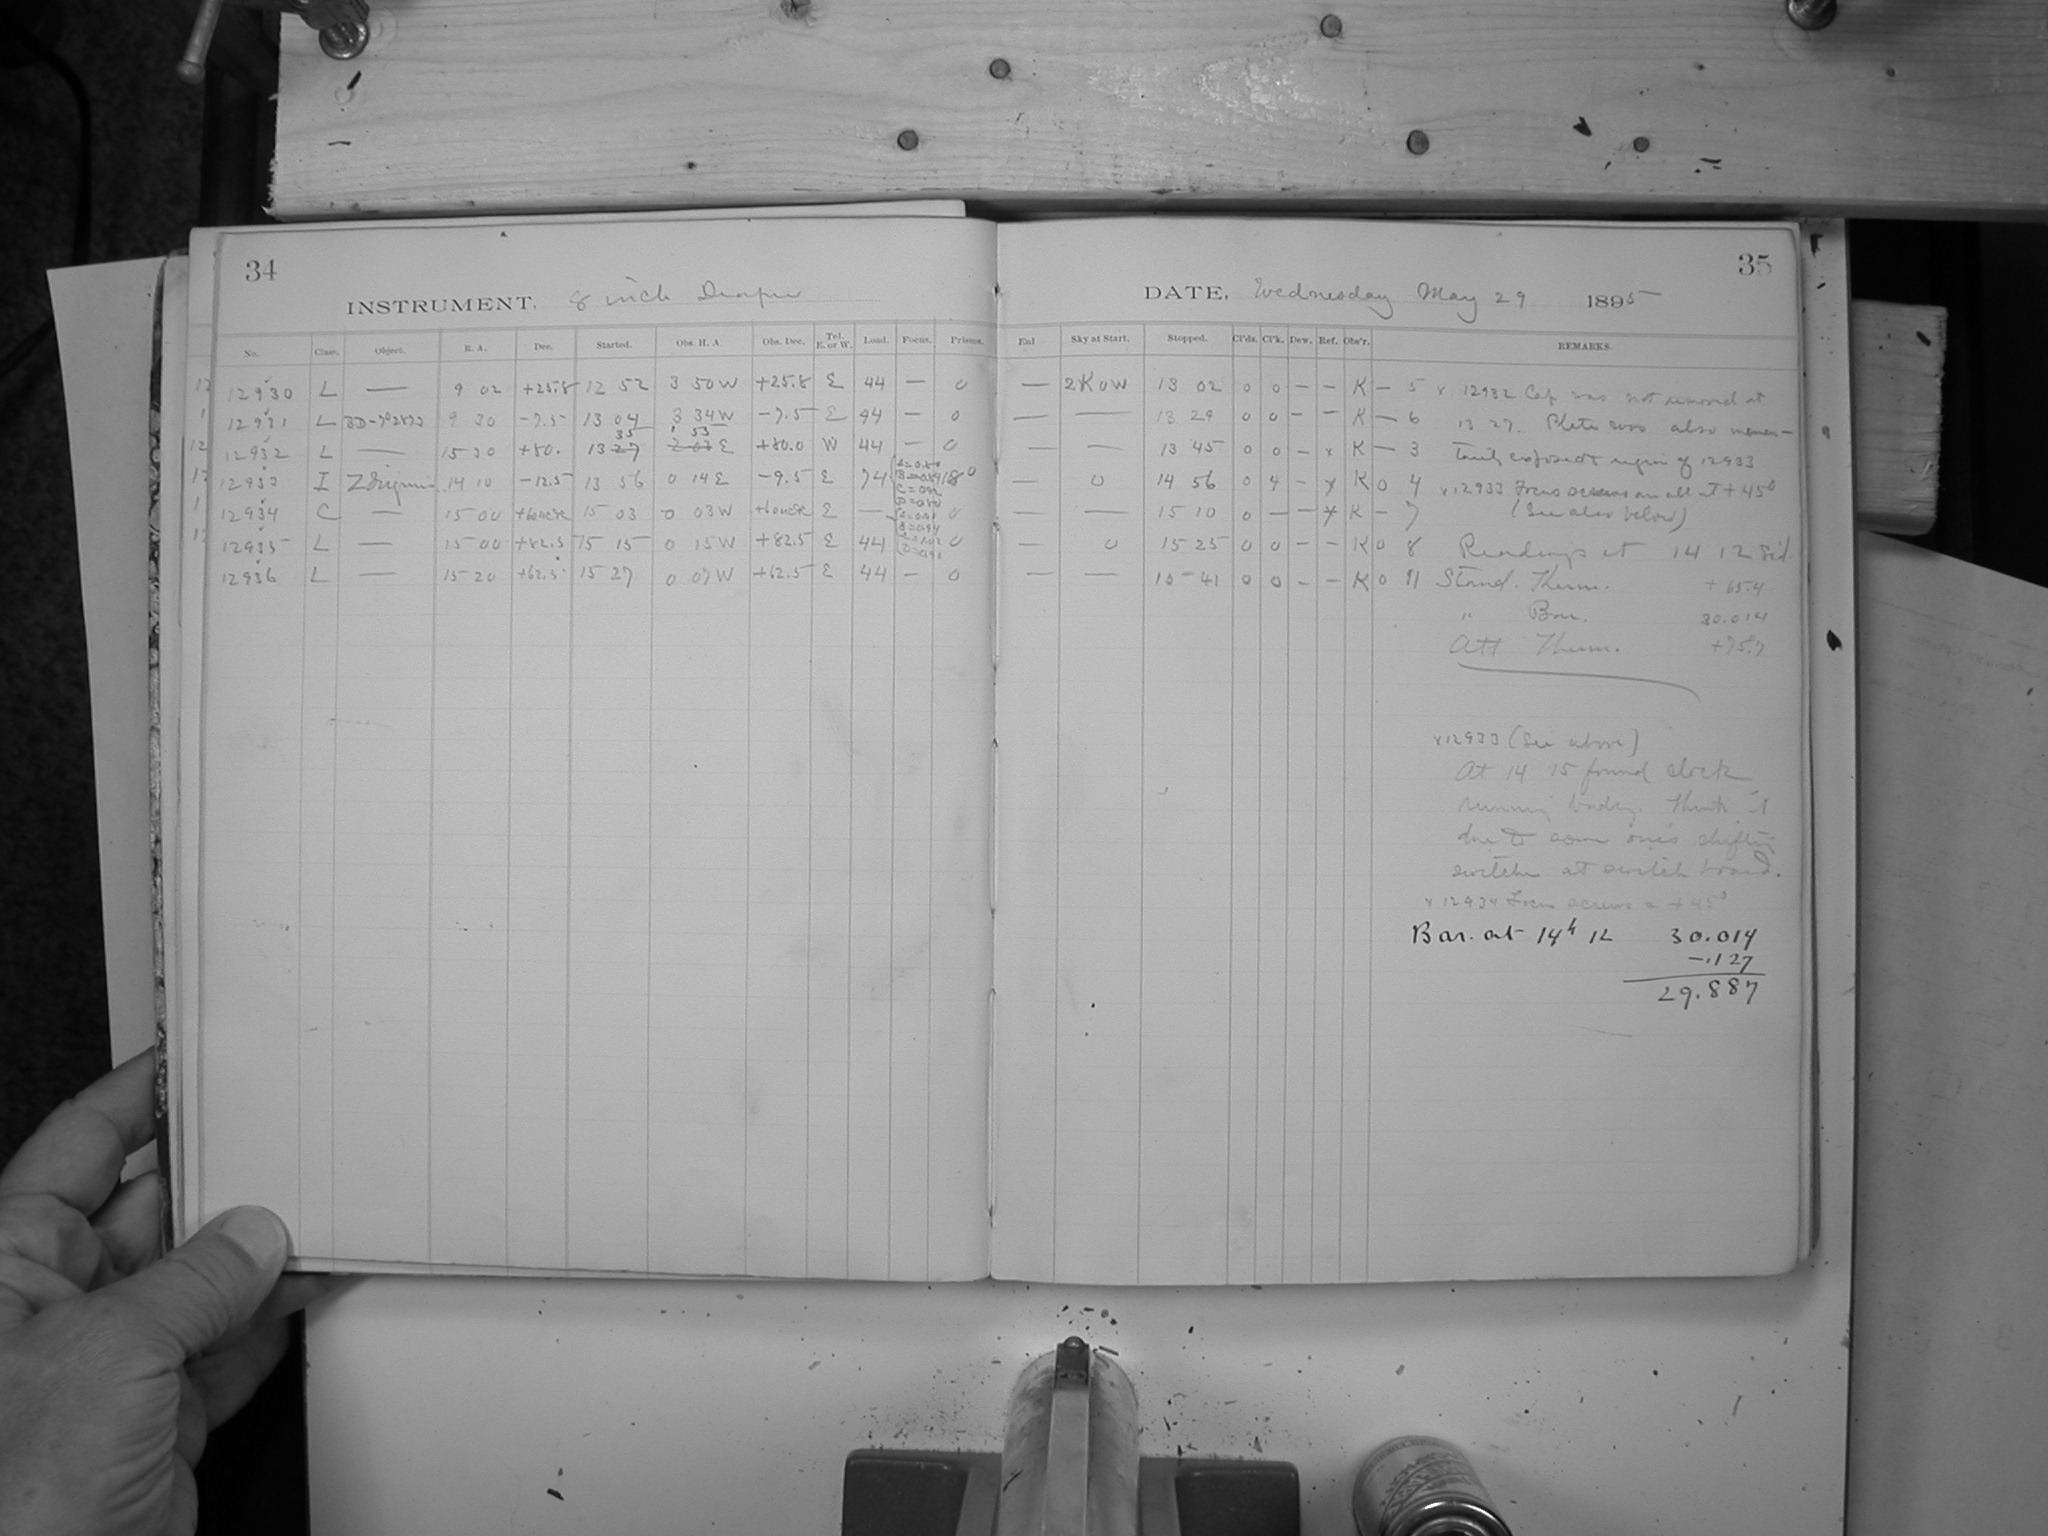 34
INSTRUMENT. 8 inch Draper
No. Class. Object. R. A. Dec. Started. Obs. H. A. Obs. Dec. Tel. E. or W. Load. Focus. Prisms.
12930 L — 9 02 +25.8 12 52 3 50 W +25.8 E 44 — 0
12931 L BD-7°2873 9 30 -7.5 13 04 3 34 W -7.5 E 44 — 0
35 1 53
12932 L — 15 30 +80. 13 27 2 03 E +80.0 W 44 — 0
12933 I 14 10 -12.5 13 56 0 14 E -9.5 E 74
12934 C — 15 00 15 03 0 03 W E — 0
12935 L — 15 00 +82.5 15 15 0 15 W +82.5 E 44 0
12936 L — 15 20 +62.5 15 27 0 07 W +62.5 E 44 — 0
35
DATE. Wednesday May 29 1895
Enl Sky at Start. Stopped. Cl'ds. Cl'k. Dew. Ref. Obs'r. REMARKS.
— 2K0W 13 02 0 0 — — K — 5 x 12932 Cap was not removed at
— — 13 29 0 0 — — K — 6 13 27. Plate was also momen-
— — 13 45 0 0 — x K — 3 tarily exposed to region of 12933
— 0 14 56 0 4 — x K 0 4 x 12933 Focus screws all at +45°
— — 15 10 0 — — x K — 7 (See also below)
— 0 15 25 0 0 — — K 0 8 Readings at 14 12 Sid.
— — 15 41 0 0 — — K 0 11 Stand. Therm. +65.4
" Bar. 30.014
Att Therm. +75.7
x 12933 (See above)
At 14 15 found clock
running badly. Think it
due to some one's shifting
switches at switch board.
x 12934 Focus screws = +45°
Bar. at 14h 12 30.014
-.127
29.887